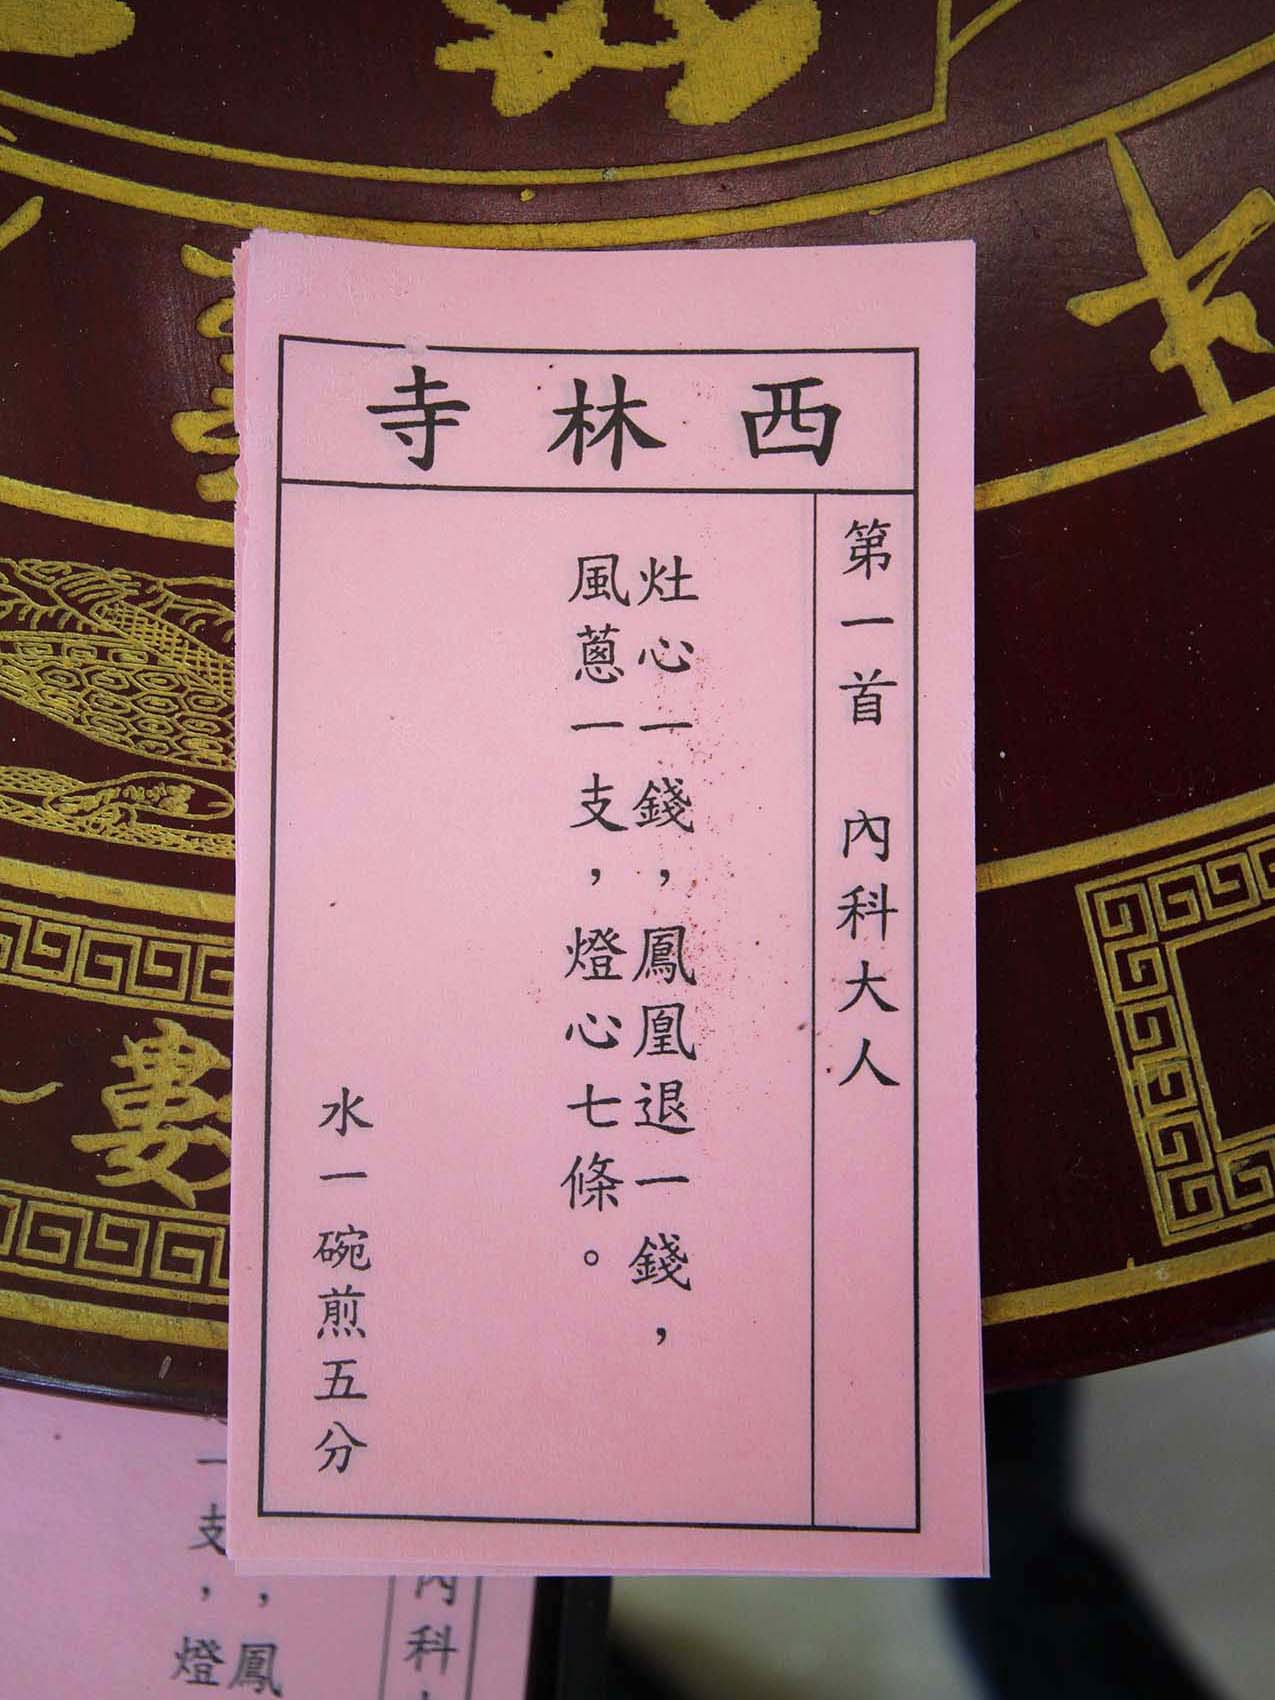 西林寺
第一首 內科大人
灶心一錢，鳳凰退一錢，
風蔥一支，燈心七條。
水一碗煎五分
婁
內科
，鳳
一支，燈